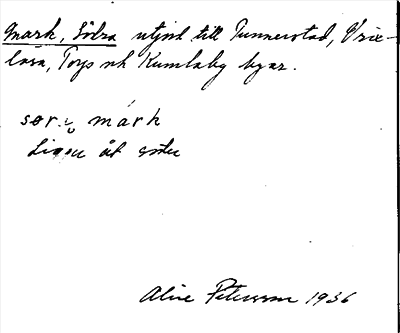 Mark, Södra utjord till Tunnerstad, Vrix-
lösa, Torp och Kumlaby byar.
sør. márk
Ligger åt söder
Aline Petersson 1936